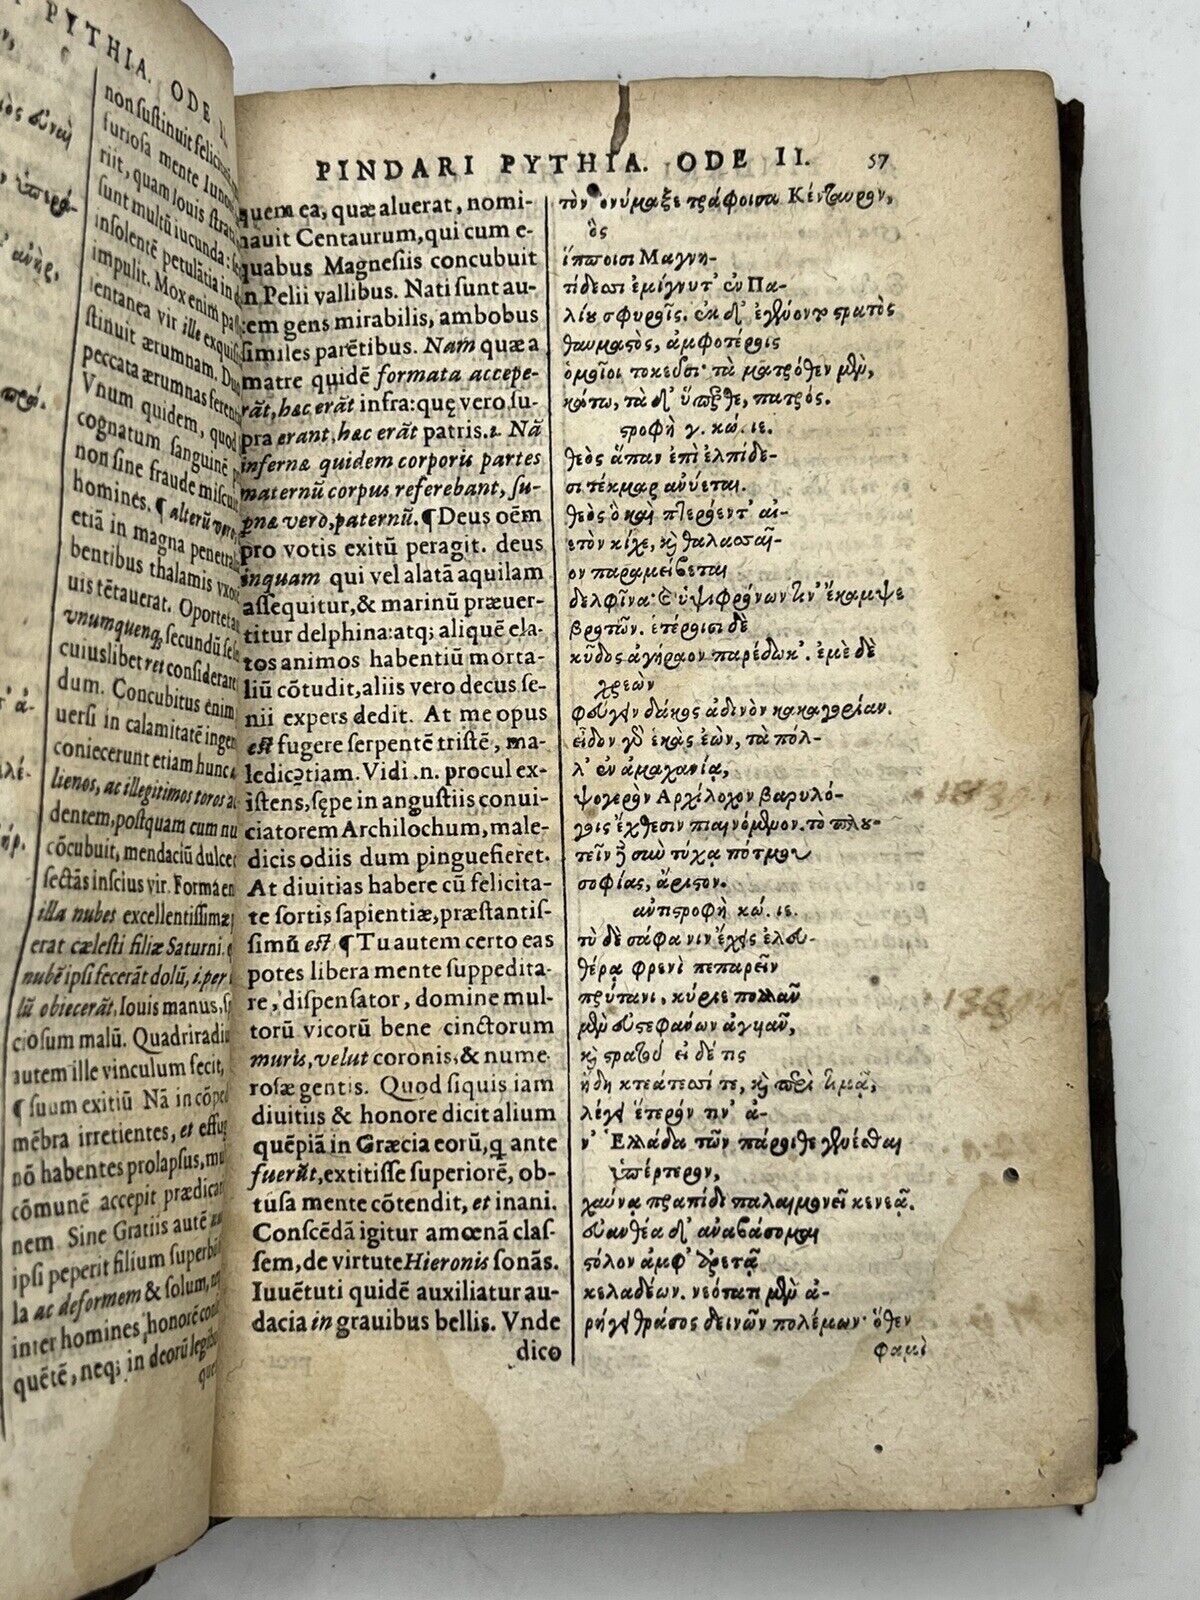 PYTHIA. ODE
non sustinuit
furiosa mente Iuno
riit, quam Iouis strat
sunt multũ iucunda:
insolentẽ petulãtia in
impulit. Mox enim
entanea vir ille exqui
stinuit ærumnam. Du
peccata ærumnas
Vnum quidem, quod
cognatum sanguinẽ
non sine fraude miscu
homines. ¶ alterũ vero,
etiã in magna penetral
bentibus thalamis vxo
uis tẽtauerat. Oportet
vnumquenq; secundũ se
cuiuslibet rei considerare
dum. Concubitus enim
uersi in calamitatẽ ingen
coniecerunt etiam hunc
lienos, ac illegitimos toros ac
dentem, postquam cum nu
cõcubuit, mendaciũ dulce
sectãs inscius vir. Forma en
illa nubes excellentissimæ
erat cælesti filiæ Saturni.
nubẽ ipsi fecerãt dolũ, i. per
lũ obiecerãt, Iouis manus,
ciosum malũ. Quadriradiũ
autem ille vinculum fecit,
¶ suum exitiũ Nã in cõped
mẽbra irretientes, et effug
nõ habentes prolapsus, mu
cõmunẽ accepit prædicat
nem. Sine Gratiis autẽ
ipsi peperit filium superbũ
la ac deformem & solum,
inter homines, honorẽ
quẽtẽ, neq; in deorũ legib
que
PINDARI PYTHIA. ODE II. 57
quem ea, quæ aluerat, nomi-
nauit Centaurum, qui cum e-
quabus Magnesiis concubuit
in Pelii vallibus. Nati sunt au-
tem gens mirabilis, ambobus
similes parẽtibus. Nam quæ a
matre quidẽ formata accepe-
rãt, hæc erãt infra: quę vero su-
pra erant, hæc erãt patris. ι. Nã
infernæ quidem corporis partes
maternũ corpus referebant, su-
pnæ vero, paternũ. ¶ Deus oẽm
pro votis exitũ peragit. deus
inquam qui vel alatã aquilam
assequitur, & marinũ præuer-
titur delphina: atq; aliquẽ ela-
tos animos habentiũ morta-
liũ cõtudit, aliis vero decus se-
nii expers dedit. At me opus
est fugere serpentẽ tristẽ, ma-
ledicẽtiam. Vidi .n. procul ex-
istens, sępe in angustiis conui-
ciatorem Archilochum, male-
dicis odiis dum pinguefieret.
At diuitias habere cũ felicita-
te sortis sapientiæ, præstantis-
simũ est ¶ Tu autem certo eas
potes libera mente suppedita-
re, dispensator, domine mul-
torũ vicorũ bene cinctorum
muris, velut coronis, & nume
rosæ gentis. Quod siquis iam
diuitiis & honore dicit alium
quẽpiã in Græcia eorũ, q ante
fuerũt, extitisse superiorẽ, ob-
tusa mente cõtendit, et inani.
Conscẽdã igitur amœnã clas-
sem, de virtute Hieronis sonãs.
Iuuẽtuti quidẽ auxiliatur au-
dacia in grauibus bellis. Vnde
dico
τὸν ὀνύμαξε τράφοισα Κένταυρον,
ὃς
ἵπποισι Μαγνη-
τίδεσσι ἐμίγνυτ' ἐν Πα-
λίου σφυροῖς. ἐκ δ' ἐγένοντο στρατὸς
θαυμαστὸς, ἀμφοτέροις
ὁμοῖοι τοκεῦσι· τὰ ματρόθεν μὲν,
κάτω, τὰ δ' ὕπερθε, πατρός.
στροφὴ γ. κώ. ιε.
θεὸς ἅπαν ἐπὶ ἐλπίδε-
σι τέκμαρ ἀνύεται.
θεὸς ὃ καὶ πτερόεντ' αἰ-
ετὸν κίχε, καὶ θαλασσαῖ-
ον παραμείβεται
δελφῖνα· καὶ ὑψιφρόνων τιν' ἔκαμψε
βροτῶν. ἑτέροισι δὲ
κῦδος ἀγήραον παρέδωκ'. ἐμὲ δὲ
χρεὼν
φεύγειν δάκος ἀδινὸν κακαγοριᾶν.
εἶδον γὰρ ἑκὰς ἐὼν, τὰ πόλ-
λ' ἐν ἀμαχανίᾳ,
ψογερὸν Ἀρχίλοχον βαρυλό-
γοις ἔχθεσιν πιαινόμενον. τὸ πλου-
τεῖν δὲ σὺν τύχᾳ πότμου
σοφίας, ἄριστον.
ἀντιστροφὴ κώ. ιε.
τὺ δὲ σάφα νιν ἔχεις ἐλευ-
θέρᾳ φρενὶ πεπαρεῖν
πρύτανι, κύριε πολλᾶν
μὲν εὐστεφάνων ἀγυιᾶν,
καὶ στρατοῦ εἰ δέ τις
ἤδη κτεάτεσσί τε, καὶ περὶ τιμᾷ,
λέγει ἕτερόν τιν' ἀ-
ν' Ἑλλάδα τῶν πάροιθε γενέσθαι
ὑπέρτερον,
χαύνᾳ πραπίδι παλαιμονεῖ κενεᾷ.
εὐανθέα δ' ἀναβάσομαι
στόλον ἀμφ' ἀρετᾷ
κελαδέων. νεότατι μὲν ἀ-
ρήγει θράσος δεινῶν πολέμων· ὅθεν
φαμὶ